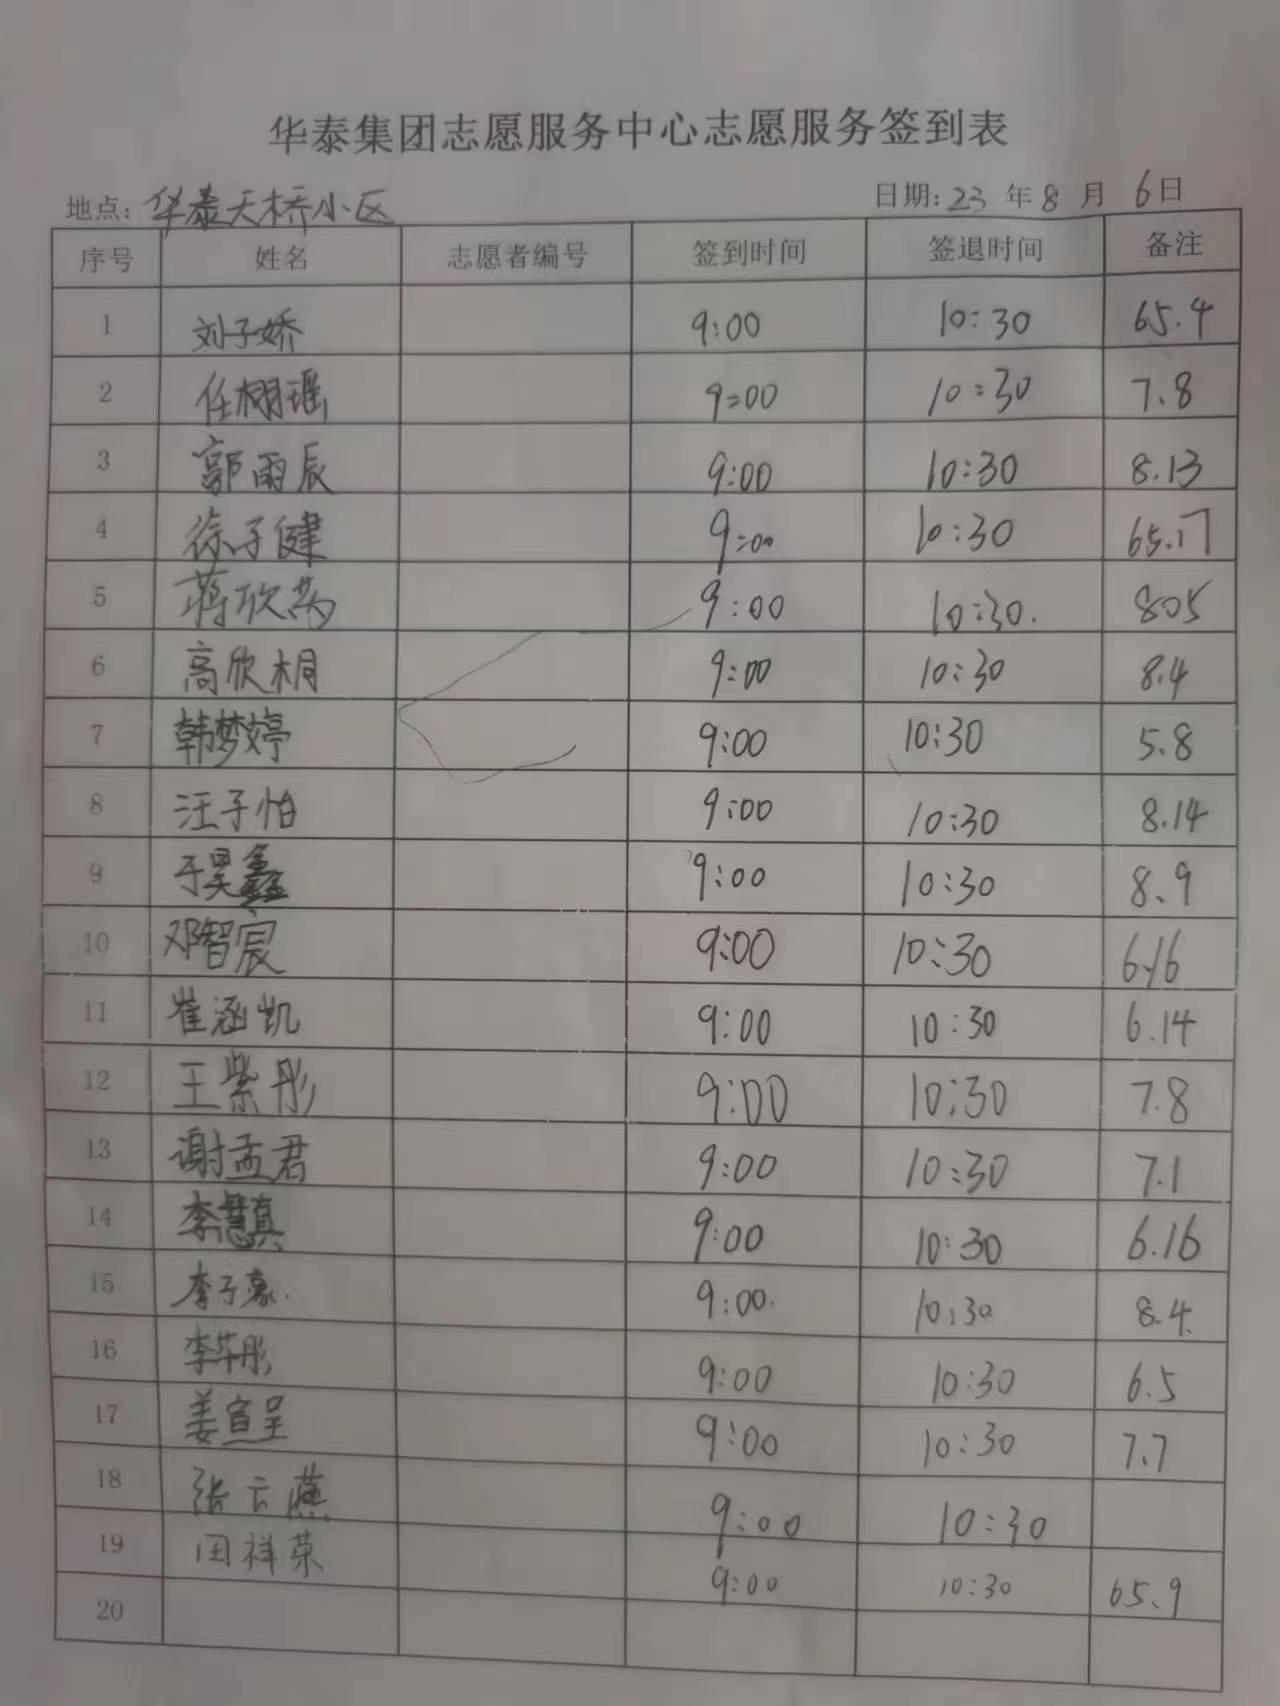 华泰集团志愿服务中心志愿服务签到表
地点: 华泰天桥小区 日期: 23 年 8 月 6 日
序号 姓名 志愿者编号 签到时间 签退时间 备注
1 刘子娇 9:00 10:30 65.4
2 任栩瑶 9:00 10:30 7.8
3 郭雨辰 9:00 10:30 8.13
4 徐子健 9:00 10:30 65.17
5 蒋欣芮 9:00 10:30. 805
6 高欣桐 9:00 10:30 8.4
7 韩梦婷 9:00 10:30 5.8
8 汪子怡 9:00 10:30 8.14
9 于昊鑫 9:00 10:30 8.9
10 邓智宸 9:00 10:30 6.16
11 崔涵凯 9:00 10:30 6.14
12 王紫彤 9:00 10:30 7.8
13 谢孟君 9:00 10:30 7.1
14 李慧真 9:00 10:30 6.16
15 李子豪. 9:00. 10:30 8.4.
16 李华彤 9:00 10:30 6.5
17 姜宣呈 9:00 10:30 7.7
18 张云燕 9:00 10:30
19 田祥荣 9:00 10:30 65.9
20